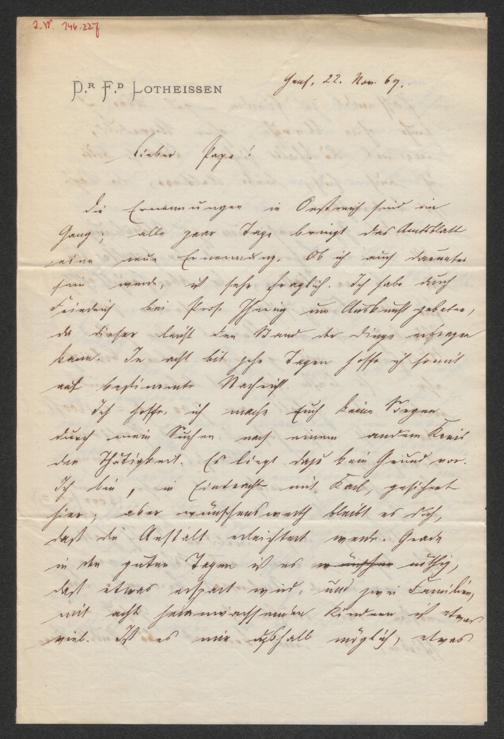 J.N. 746.227
DR. FD. LOTHEISSEN
Genf, 22. Nov. 69.
Lieber Papa!
Die Ernennungen in Oestreich sind im
Gang; alle paar Tage bringt das Amtsblatt
eine neue Ernennung. Ob ich auch darunter
sein werde, ist sehr fraglich. Ich habe durch
Friedrich bei Prof. Ihering um Auskunft gebeten,
da dieser leicht den Stand der Dinge erfragen
kann. In acht bis zehn Tagen hoffe ich somit
auf bestimmte Nachricht.
Ich hoffe, ich mache Euch keine Sorgen
durch mein Suchen nach einem andern Kreis
der Thätigkeit. Es liegt dazu kein Grund vor.
Ich bin, in Eintracht mit Karl, gesichert
hier; aber wünschenswerth bleibt es doch,
daß die Anstalt erleichtert werde. Grade
in den guten Tagen ist es nöthig,
daß etwas erspart wird, und zwei Familien,
mit acht heranwachsenden Kindern ist etwas
viel. Ist es mir deßhalb möglich, etwas